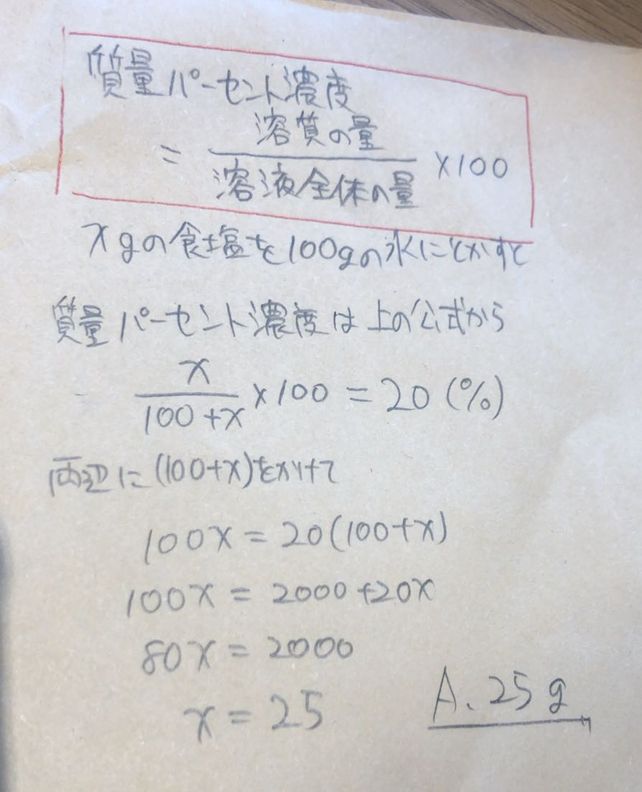 質量パーセント濃度
= 溶質の量/溶液全体の量 ×100
xgの食塩を100gの水にとかすと
質量パーセント濃度は上の公式から
x/(100+x) ×100 = 20 (%)
両辺に(100+x)をかけて
100x = 20(100+x)
100x = 2000+20x
80x = 2000
x = 25
A、25g